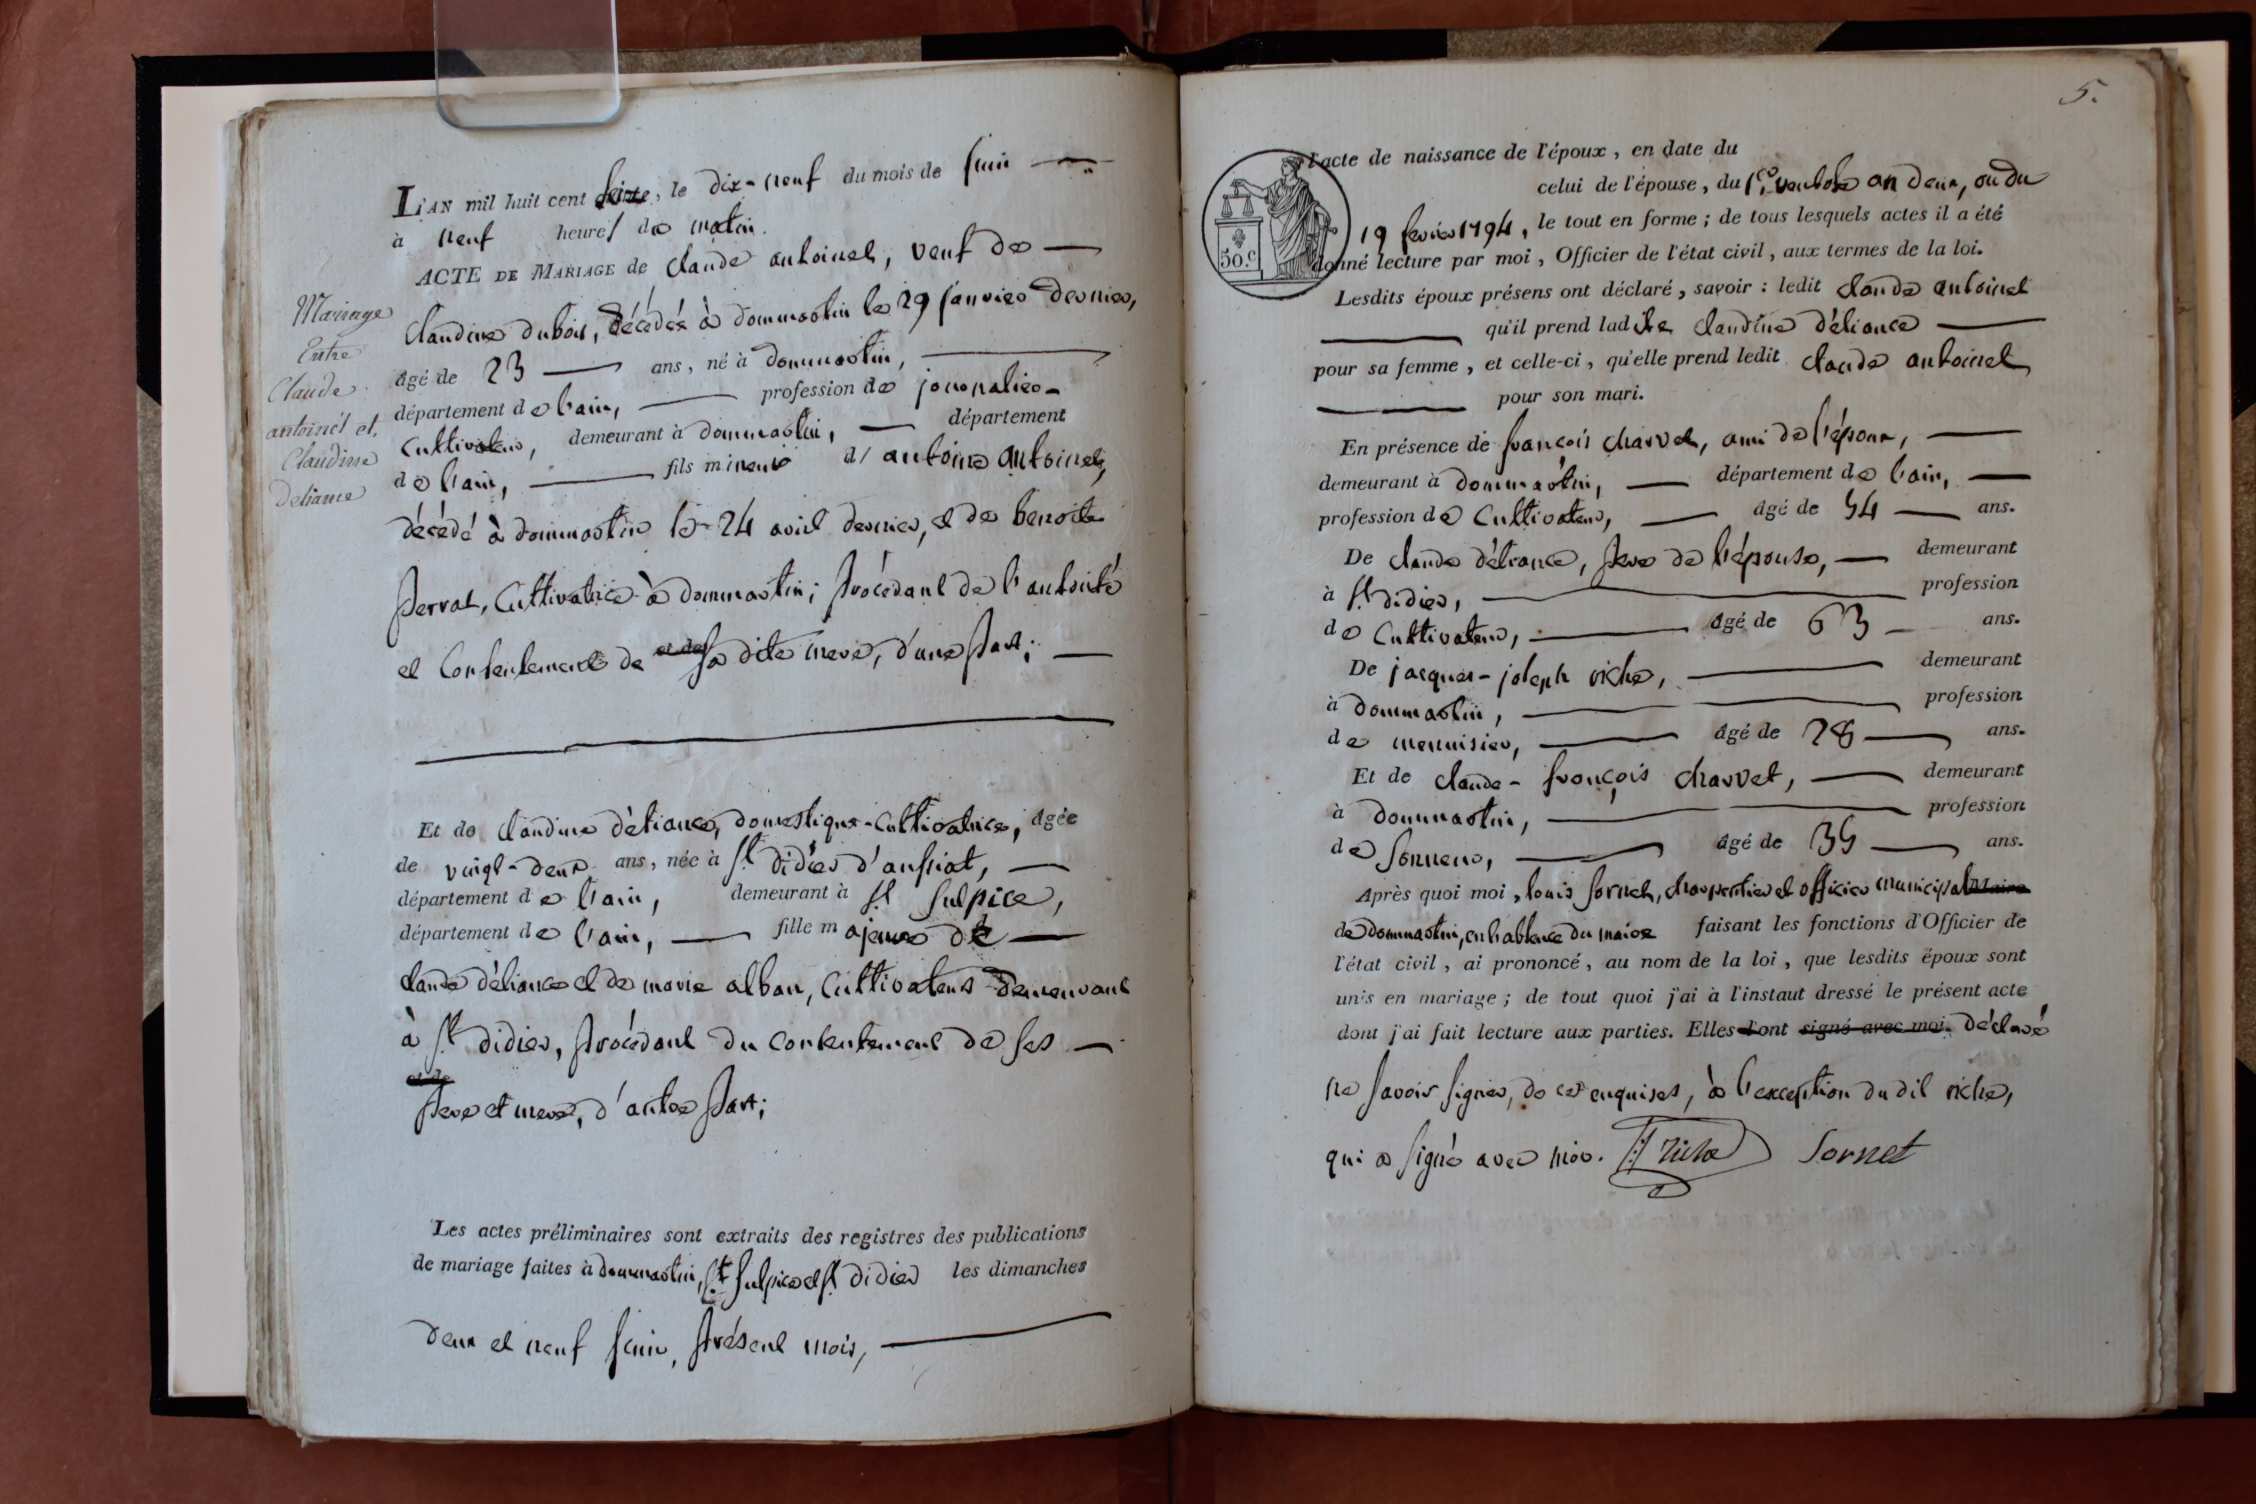 L'AN mil huit cent seize, le dix-neuf du mois de juin
à neuf heures du matin.
ACTE DE MARIAGE de claude antoinet, veuf de
Mariage
Entre
Claude
antoinét et,
Claudine
deliance
claudine dubois, décédée à dommartin le 29 janvier dernier,
âgé de 23 ans, né à dommartin,
département de l'ain, profession de journalier-
cultivateur, demeurant à dommartin, département
de l'ain, fils mineur d' antoine antoinet,
décédé à dommartin le 24 avril dernier, et de benoite
perrat, cultivatrice à dommartin; procédant de l'autorité
et consentement de sa dite mere, d'une part;
Et de claudine déliance, domestique-cultivatrice, âgée
de vingt-deux ans, née à st didier d'aussiat,
département de l'ain, demeurant à st sulpice,
département de l'ain, fille majeure de
claude déliance et de marie alban, cultivateurs demeurant
à st didier, procédant du consentement de ses
et de
pere et mere, d'autre part;
Les actes préliminaires sont extraits des registres des publications
de mariage faites à dommartin, st sulpice et st didier les dimanches
deux et neuf juin, présent mois,
5.
l'acte de naissance de l'époux, en date du
celui de l'épouse, du 1er ventose an deux, ou du
19 fevrier 1794, le tout en forme; de tous lesquels actes il a été
50. c
donné lecture par moi, Officier de l'état civil, aux termes de la loi.
Lesdits époux présens ont déclaré, savoir: ledit claude antoinet
qu'il prend ladite claudine déliance
pour sa femme, et celle-ci, qu'elle prend ledit claude antoinet
pour son mari.
En présence de françois charvet, ami de l'époux,
demeurant à dommartin, département de l'ain,
profession de cultivateur, âgé de 54 ans.
De claude déliance, pere de l'épouse, demeurant
à st didier, profession
de cultivateur, âgé de 63 ans.
De jacques-joseph riche, demeurant
à dommartin, profession
de menuisier, âgé de 28 ans.
Et de claude-françois charvet, demeurant
à dommartin, profession
de sonneur, âgé de 35 ans.
Après quoi moi, louis sornet, charpentier et officier municipal Maire
de dommartin, en l'absence du maire faisant les fonctions d'Officier de
l'état civil, ai prononcé, au nom de la loi, que lesdits époux sont
unis en mariage; de tout quoi j'ai à l'instant dressé le présent acte
dont j'ai fait lecture aux parties. Elles l'ont signé avec moi. déclaré
ne savoir signer, de ce enquises, à l'exception du dit riche,
qui a signé avec moi. riche Sornet